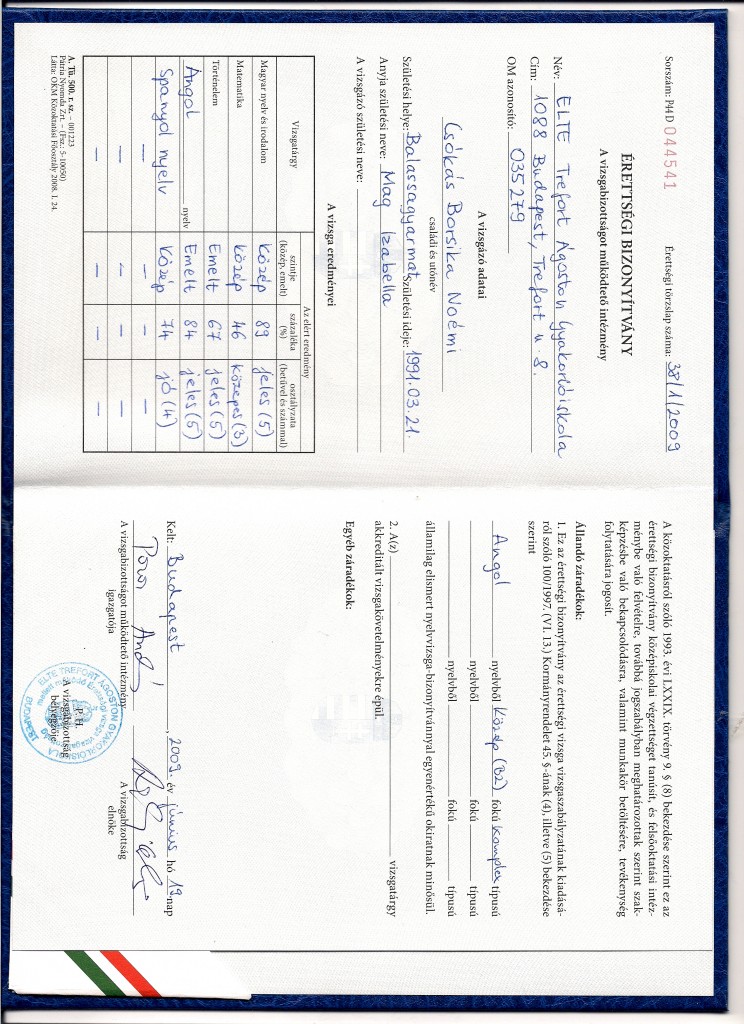 Sorszám: P44D 044541
Érettségi törzslap száma: 38/1/2009
ÉRETTSÉGI BIZONYÍTVÁNY
A vizsgabizottságot működtető intézmény
Név: ELTE Trefort Ágoston Gyakorlóiskola
Cím: 1088 Budapest, Trefort u. 8.
OM azonosító: 035279
A vizsgázó adatai
Csókás Borsika Noémi
családi és utónév
Születési helye: Balassagyarmat Születési ideje: 1991.03.21.
Anyja születési neve: Mag Izabella
A vizsgázó születési neve:
A vizsga eredményei
Vizsgatárgy
Az elért eredmény
szintje (közép, emelt)
százaléka (%)
osztályzata (betűvel és számmal)
Magyar nyelv és irodalom Közép 89 jeles (5)
Matematika Közép 46 közepes (3)
Történelem Emelt 67 jeles (5)
Angol nyelv Emelt 84 jeles (5)
Spanyol nyelv Közép 74 jó (4)
— — — —
— — — —
— — — —
A. Tü. 500. r. sz. – 001223
Pátria Nyomda Zrt. – (Fsz.: 5-10050)
Látta: OKM Közoktatási Főosztály 2008. 1. 24.
A közoktatásról szóló 1993. évi LXXIX. törvény 9. § (8) bekezdése szerint ez az
érettségi bizonyítvány középiskolai végzettséget tanúsít, és felsőoktatási intéz-
ménybe való felvételre, továbbá jogszabályban meghatározottak szerint szak-
képzésbe való bekapcsolódásra, valamint munkakör betöltésére, tevékenység
folytatására jogosít.
Állandó záradékok:
1. Ez az érettségi bizonyítvány az érettségi vizsga vizsgaszabályzatának kiadásá-
ról szóló 100/1997. (VI. 13.) Kormányrendelet 45. §-ának (4), illetve (5) bekezdése
szerint
Angol nyelvből Közép (B2) fokú komplex típusú
nyelvből fokú típusú
nyelvből fokú típusú
államilag elismert nyelvvizsga-bizonyítvánnyal egyenértékű okiratnak minősül.
2. A(z) vizsgatárgy
akkreditált vizsgakövetelményekre épül.
Egyéb záradékok:
Kelt: Budapest, 2009. év június hó 19. nap
A vizsgabizottságot működtető intézmény
igazgatója
P. H.
A vizsgabizottság
bélyegzője
A vizsgabizottság
elnöke
ELTE TREFORT ÁGOSTON GYAKORLÓISKOLA